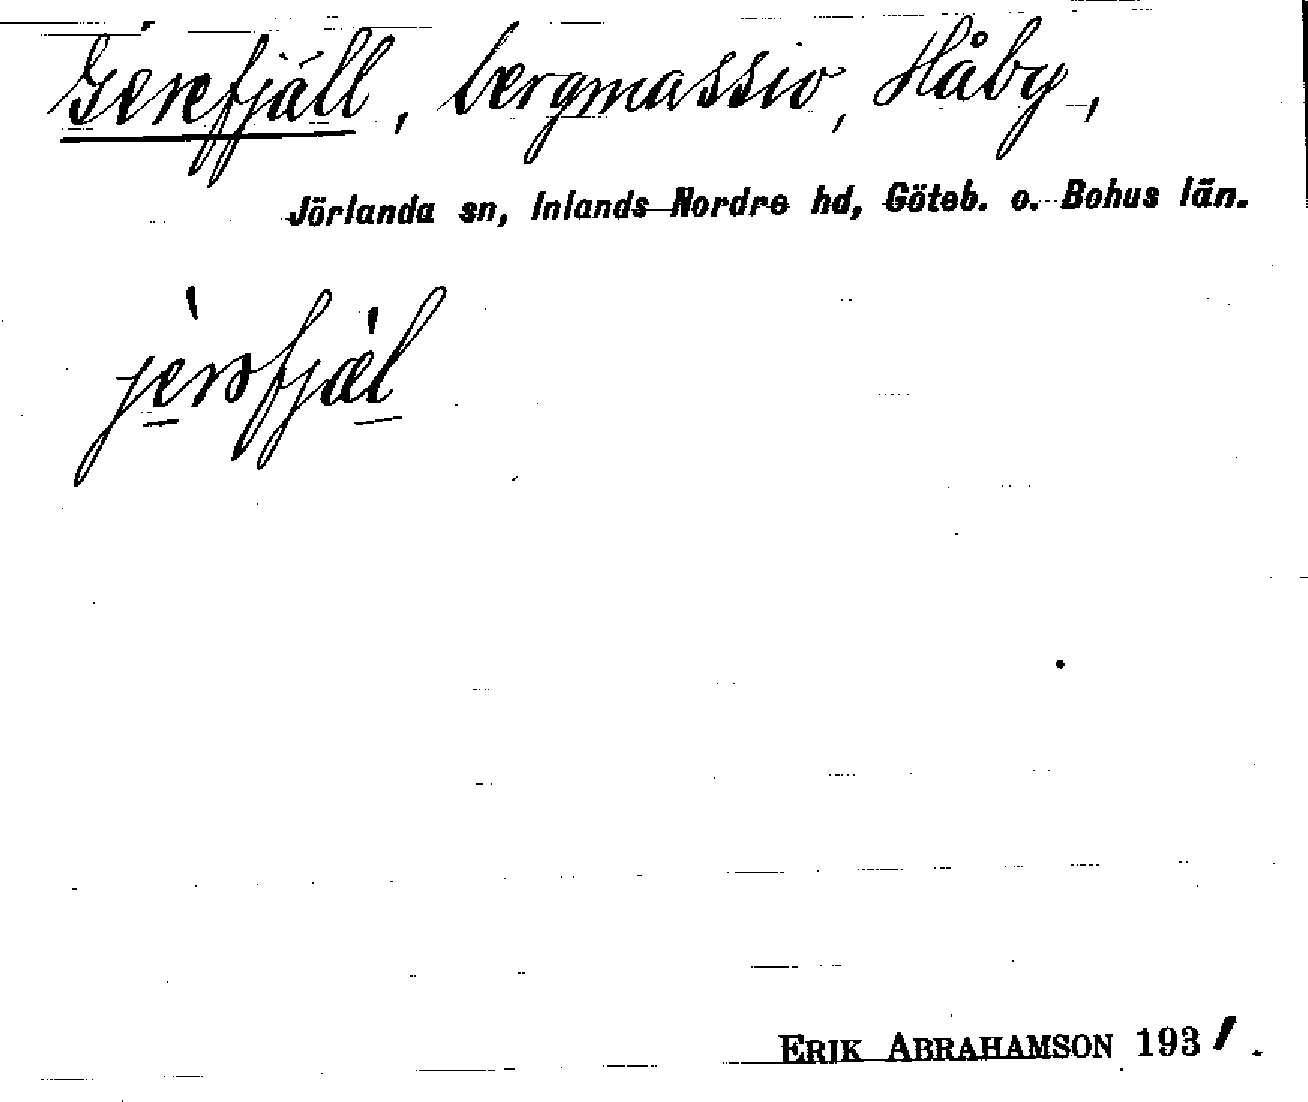 Gerefjäll, bergmassiv, Håby,
Jörlanda sn, Inlands Nordre hd, Göteb. o. Bohus län.
ERIK ABRAHAMSON 1931.